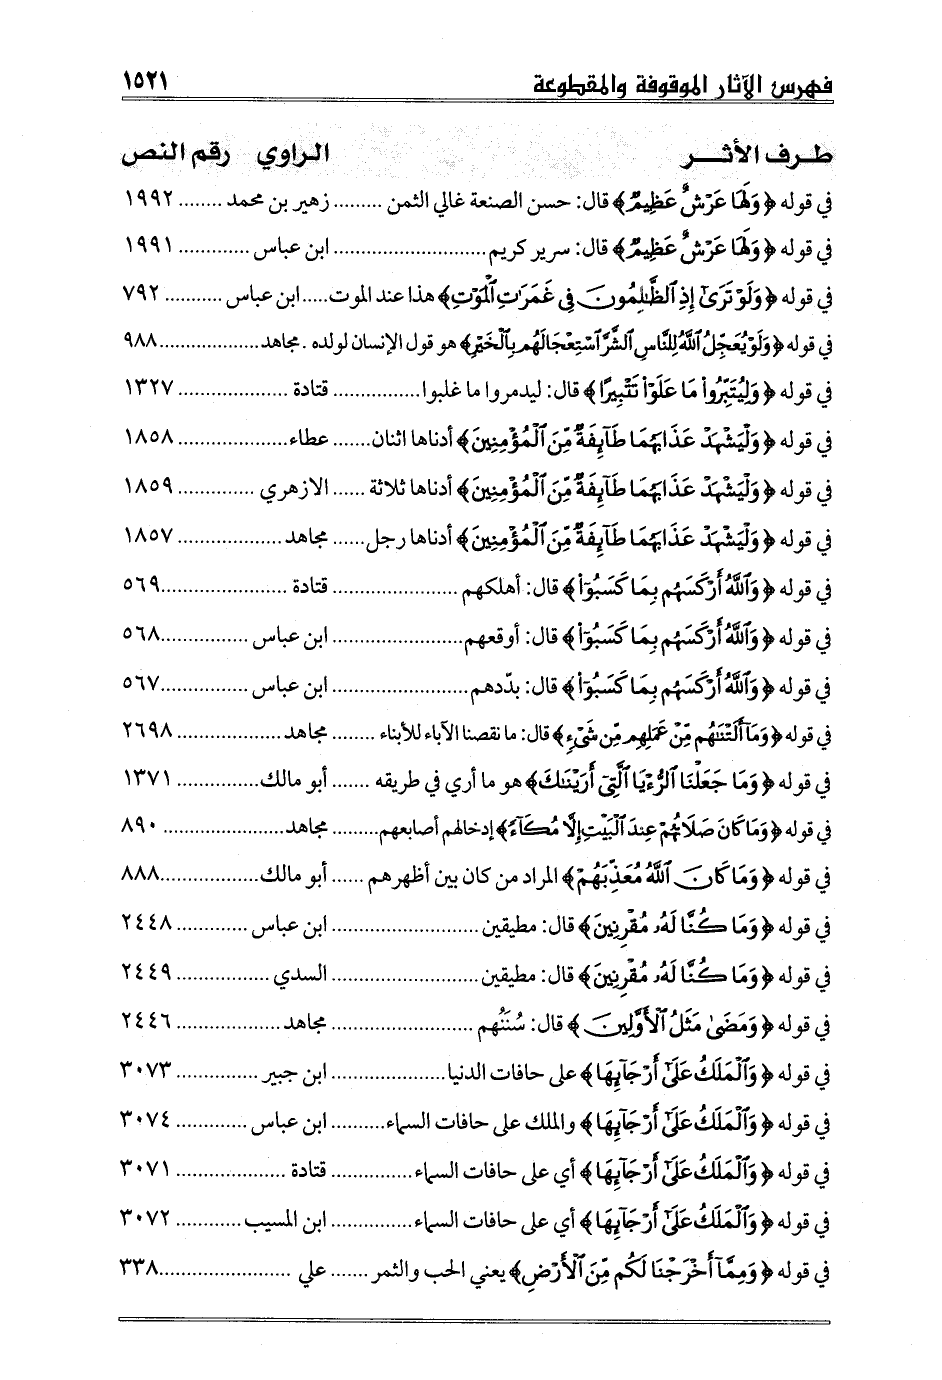 فهرس الآثار الموقوفة والمقطوعة ١٥٢١
طرف الأثر الراوي رقم النص
في قوله ﴿وَلَهَا عَرْشٌ عَظِيمٌ﴾ قال: حسن الصنعة غالي الثمن ......... زهير بن محمد ........ ١٩٩٢
في قوله ﴿وَلَهَا عَرْشٌ عَظِيمٌ﴾ قال: سرير كريم .......................... ابن عباس ............. ١٩٩١
في قوله ﴿وَلَوْ تَرَىٰٓ إِذِ ٱلظَّـٰلِمُونَ فِى غَمَرَٰتِ ٱلْمَوْتِ﴾ هذا عند الموت ..... ابن عباس ........... ٧٩٢
في قوله ﴿وَلَوْ يُعَجِّلُ ٱللَّهُ لِلنَّاسِ ٱلشَّرَّ ٱسْتِعْجَالَهُم بِٱلْخَيْرِ﴾ هو قول الإنسان لولده . مجاهد .................. ٩٨٨
في قوله ﴿وَلِيُتَبِّرُوا۟ مَا عَلَوْا۟ تَتْبِيرًا﴾ قال: ليدمروا ما غلبوا ................ قتادة ................... ١٣٢٧
في قوله ﴿وَلْيَشْهَدْ عَذَابَهُمَا طَآئِفَةٌ مِّنَ ٱلْمُؤْمِنِينَ﴾ أدناها اثنان ....... عطاء ................... ١٨٥٨
في قوله ﴿وَلْيَشْهَدْ عَذَابَهُمَا طَآئِفَةٌ مِّنَ ٱلْمُؤْمِنِينَ﴾ أدناها ثلاثة ...... الازهري ............. ١٨٥٩
في قوله ﴿وَلْيَشْهَدْ عَذَابَهُمَا طَآئِفَةٌ مِّنَ ٱلْمُؤْمِنِينَ﴾ أدناها رجل ...... مجاهد .................. ١٨٥٧
في قوله ﴿وَٱللَّهُ أَرْكَسَهُم بِمَا كَسَبُوٓا۟﴾ قال: أهلكهم ...................... قتادة .................... ٥٦٩
في قوله ﴿وَٱللَّهُ أَرْكَسَهُم بِمَا كَسَبُوٓا۟﴾ قال: أوقعهم ....................... ابن عباس ............... ٥٦٨
في قوله ﴿وَٱللَّهُ أَرْكَسَهُم بِمَا كَسَبُوٓا۟﴾ قال: بدّدهم ........................ ابن عباس ............... ٥٦٧
في قوله ﴿وَمَآ أَلَتْنَـٰهُم مِّنْ عَمَلِهِم مِّن شَىْءٍ﴾ قال: ما نقصنا الآباء للأبناء ........ مجاهد ................... ٢٦٩٨
في قوله ﴿وَمَا جَعَلْنَا ٱلرُّءْيَا ٱلَّتِىٓ أَرَيْنَـٰكَ﴾ هو ما أري في طريقه ....... أبو مالك .............. ١٣٧١
في قوله ﴿وَمَا كَانَ صَلَاتُهُمْ عِندَ ٱلْبَيْتِ إِلَّا مُكَآءً﴾ إدخالهم أصابعهم ......... مجاهد ..................... ٨٩٠
في قوله ﴿وَمَا كَانَ ٱللَّهُ مُعَذِّبَهُمْ﴾ المراد من كان بين أظهرهم ...... أبو مالك ................. ٨٨٨
في قوله ﴿وَمَا كُنَّا لَهُۥ مُقْرِنِينَ﴾ قال: مطيقين ......................... ابن عباس ............ ٢٤٤٨
في قوله ﴿وَمَا كُنَّا لَهُۥ مُقْرِنِينَ﴾ قال: مطيقين ......................... السدي ................ ٢٤٤٩
في قوله ﴿وَمَضَىٰ مَثَلُ ٱلْأَوَّلِينَ﴾ قال: سُنَنُهم ........................ مجاهد .................. ٢٤٤٦
في قوله ﴿وَٱلْمَلَكُ عَلَىٰٓ أَرْجَآئِهَا﴾ على حافات الدنيا .................... ابن جبير .............. ٣٠٧٣
في قوله ﴿وَٱلْمَلَكُ عَلَىٰٓ أَرْجَآئِهَا﴾ والملك على حافات السماء .......... ابن عباس ............ ٣٠٧٤
في قوله ﴿وَٱلْمَلَكُ عَلَىٰٓ أَرْجَآئِهَا﴾ أي على حافات السماء .............. قتادة ................... ٣٠٧١
في قوله ﴿وَٱلْمَلَكُ عَلَىٰٓ أَرْجَآئِهَا﴾ أي على حافات السماء .............. ابن المسيب ........... ٣٠٧٢
في قوله ﴿وَمِمَّآ أَخْرَجْنَا لَكُم مِّنَ ٱلْأَرْضِ﴾ يعني الحب والثمر ....... علي ....................... ٣٣٨